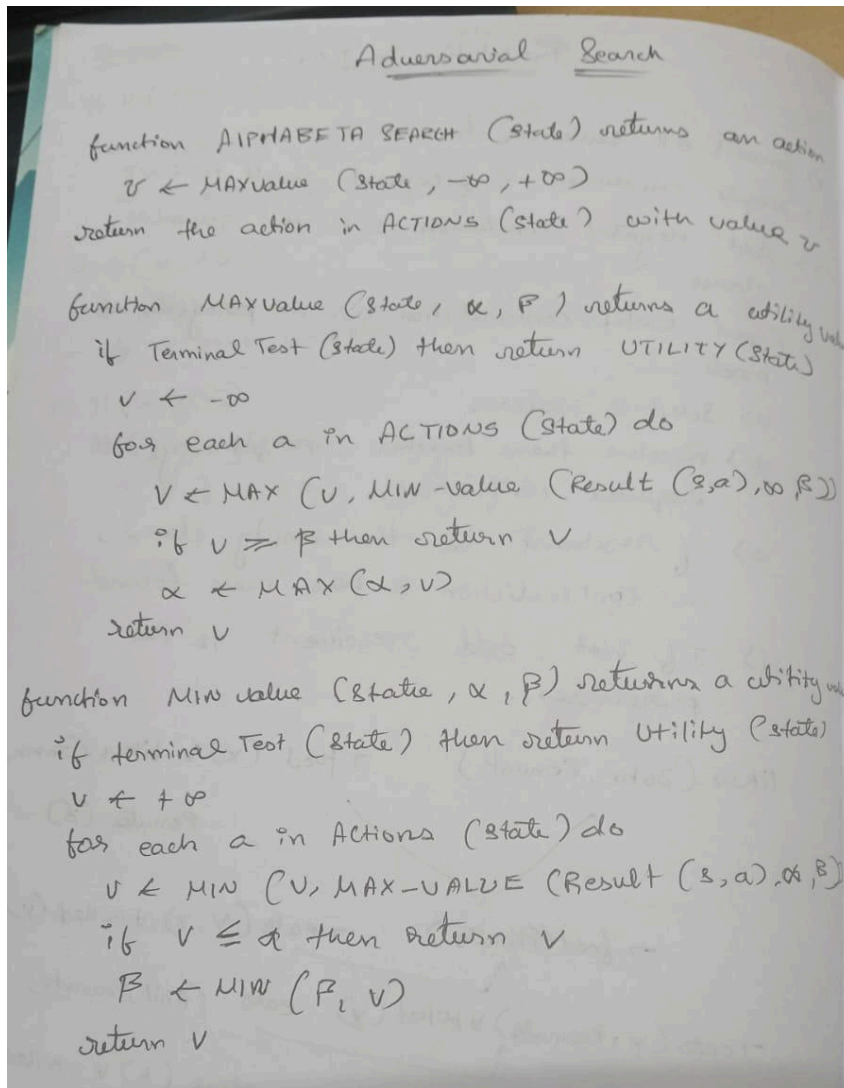 Adversarial Search
function AlPHABETA SEARCH (State) returns an action
v ← MAXvalue (State, -∞, +∞)
return the action in ACTIONS (State) with value v
function MAXvalue (State, α, β) returns a utility
if Terminal Test (State) then return UTILITY (State)
v ← -∞
for each a in ACTIONS (State) do
V ← MAX (v, MIN-value (Result (s,a), ∞, β))
if v ≥ β then return v
α ← MAX (α, v)
return v
function MIN value (State, α, β) returns a utility
if terminal Test (State) then return Utility (State)
v ← +∞
for each a in Actions (State) do
v ← MIN (v, MAX-VALUE (Result (s,a), α, β)
if v ≤ α then return v
β ← MIN (β, v)
return v